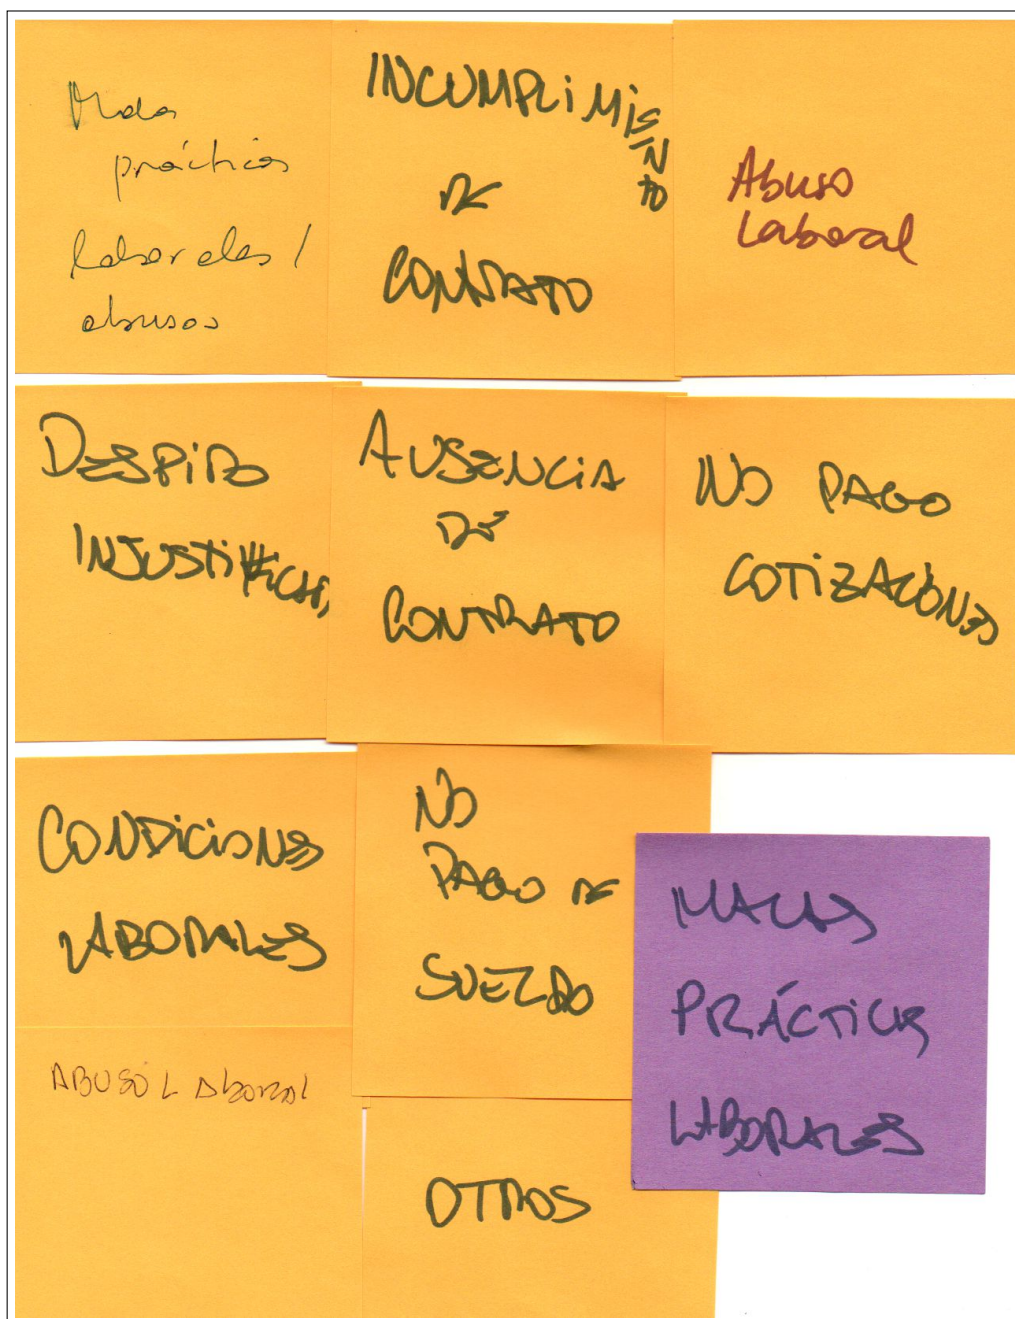 Malas
prácticas
laborales /
abusos
INCUMPLIMIENTO
DE
CONTRATO
Abuso
Laboral
DESPIDO
INJUSTIFICADO
AUSENCIA
DE
CONTRATO
NO PAGO
COTIZACIONES
CONDICIONES
LABORALES
NO
PAGO DE
SUELDO
MALAS
PRÁCTICAS
LABORALES
ABUSO LABORAL
OTROS